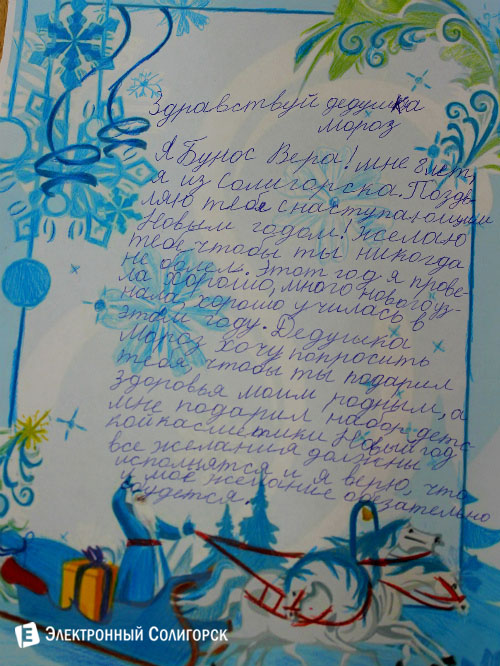 Здравствуй дедушка
мороз
Я Бунос Вера! мне 8 лет,
я из Солигорска. Поздв-
ляю тебя с наступающим
Новым годом! Желаю
тебе чтобы ты никогда
не болел. Этот год я прове-
ла хорошо, много нового уз-
нала, хорошо училась в
этом году. Дедушка
Мороз хочу попросить
тебя, чтобы ты подарил
здоровья моим родным, а
мне подарил набор детс-
кой касметики. Новый год
все желания должны
исполнятся и я верю, что
и моё желание обязательно
сбудется.
Электронный Солигорск